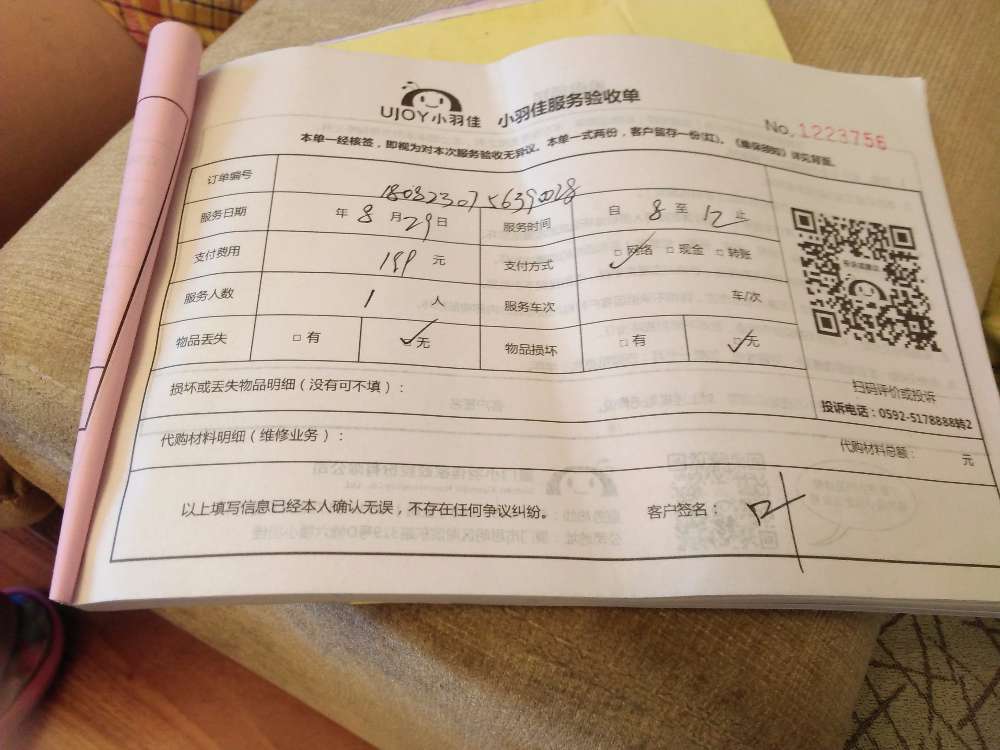 UJOY小羽佳 小羽佳服务验收单
No. 1223756
本单一经核签，即视为对本次服务验收无异议。本单一式两份，客户留存一份(红)。《集保须知》详见背面。
订单编号
服务日期 年 8 月 29 日 服务时间 自 8 至 12 止
支付费用 199 元 支付方式 □ 网络 □ 现金 □ 转账
服务人数 1 人 服务车次 车/次
物品丢失 □ 有 □ 无 物品损坏 □ 有 □ 无
损坏或丢失物品明细（没有可不填）：
扫码评价或投诉
投诉电话：0592-5178888转2
代购材料明细（维修业务）： 代购材料总额： 元
以上填写信息已经本人确认无误，不存在任何争议纠纷。 客户签名： 叶